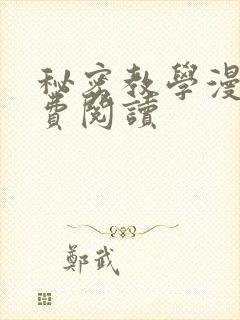 秘密教學漫
費閱讀
鄭武